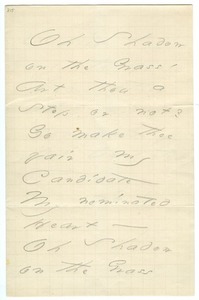 Oh Shadow
on the Grass!
Art thou a
Step or not?
Go make thee
fair my
Candidate —
My nominated
Heart —
Oh Shadow
on the Grass